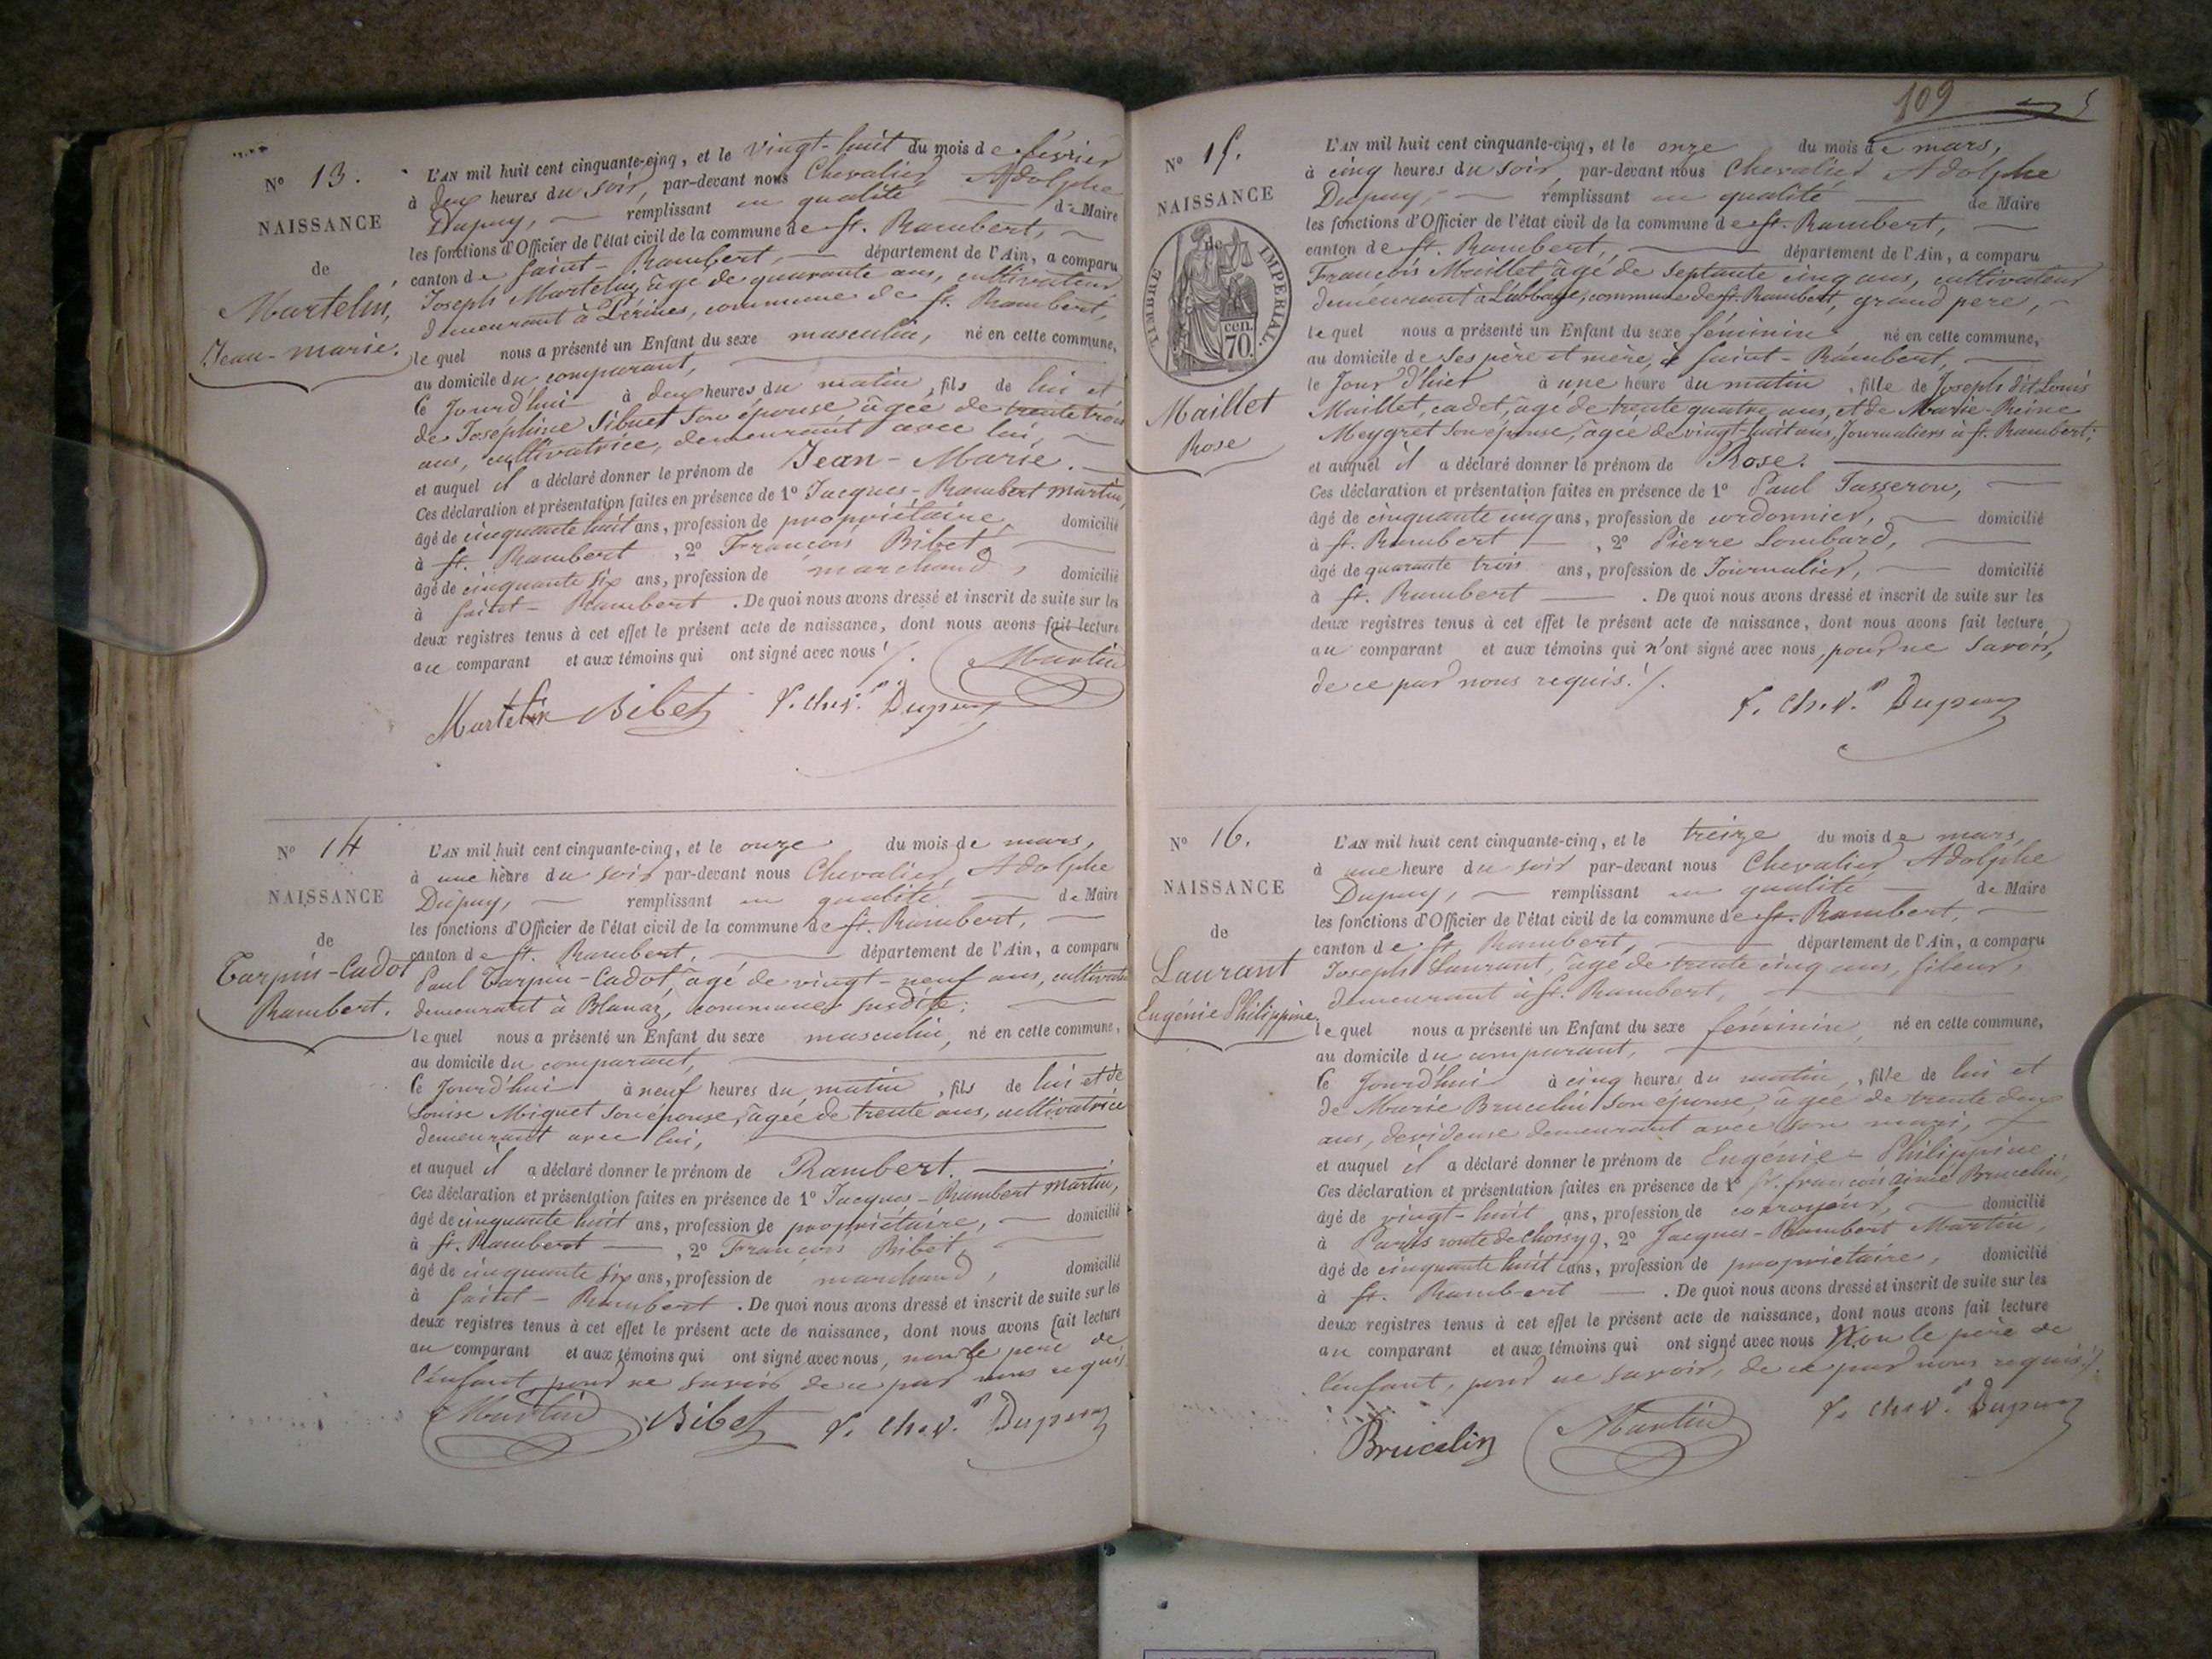 N° 13.
NAISSANCE
de
Martelin,
Jean-marie.
L'AN mil huit cent cinquante-cinq, et le vingt-huit du mois de février
à deux heures du soir, par-devant nous Chevalier Adolphe
Dupuy, remplissant en qualité de Maire
les fonctions d'Officier de l'état civil de la commune de St. Rambert,
canton de Saint-Rambert, département de l'Ain, a comparu
Joseph Martelin, âgé de quarante ans, cultivateur
demeurant à commune de St. Rambert,
lequel nous a présenté un Enfant du sexe masculin, né en cette commune,
au domicile du comparant,
Ce Jourd'hui à deux heures du matin, fils de lui et
de Joséphine Sibuet son épouse, âgée de trente trois
ans, cultivatrice, demeurant avec lui,
et auquel il a déclaré donner le prénom de Jean-Marie.
Ces déclaration et présentation faites en présence de 1° Jacques-Rambert Martin,
âgé de cinquante huit ans, profession de propriétaire, domicilié
à St. Rambert, 2° François Bibet,
âgé de cinquante six ans, profession de marchand, domicilié
à Saint-Rambert. De quoi nous avons dressé et inscrit de suite sur les
deux registres tenus à cet effet le présent acte de naissance, dont nous avons fait lecture
au comparant et aux témoins qui ont signé avec nous !/.
Martin
Martelin Bibet F. Chev. Ad Dupuy
N° 14
NAISSANCE
de
Tarpin-Cadot
Rambert.
L'AN mil huit cent cinquante-cinq, et le onze du mois de mars,
à une heure du soir par-devant nous Chevalier Adolphe
Dupuy, remplissant en qualité de Maire
les fonctions d'Officier de l'état civil de la commune de St. Rambert,
canton de St. Rambert, département de l'Ain, a comparu
Paul Tarpin-Cadot, âgé de vingt-neuf ans, cultivateur
demeurant à Blanaz, commune susdite;
lequel nous a présenté un Enfant du sexe masculin, né en cette commune,
au domicile du comparant,
Ce Jourd'hui à neuf heures du matin, fils de lui et de
Louise Miguet son épouse, âgée de trente ans, cultivatrice
demeurant avec lui,
et auquel il a déclaré donner le prénom de Rambert.
Ces déclaration et présentation faites en présence de 1° Jacques-Rambert Martin,
âgé de cinquante huit ans, profession de propriétaire, domicilié
à St. Rambert, 2° François Bibet,
âgé de cinquante six ans, profession de marchand, domicilié
à Saint-Rambert. De quoi nous avons dressé et inscrit de suite sur les
deux registres tenus à cet effet le présent acte de naissance, dont nous avons fait lecture
au comparant et aux témoins qui ont signé avec nous, non le père de
l'enfant pour ne savoir de ce par nous requis
Martin Bibet F. Chev. Ad Dupuy
109
5
N° 15.
NAISSANCE
de
TIMBRE IMPERIAL.
70. cen.
Maillet
Rose
L'AN mil huit cent cinquante-cinq, et le onze du mois de mars,
à cinq heures du soir, par-devant nous Chevalier Adolphe
Dupuy, remplissant en qualité de Maire
les fonctions d'Officier de l'état civil de la commune de St. Rambert,
canton de St. Rambert, département de l'Ain, a comparu
François Maillet âgé de septante cinq ans, cultivateur
demeurant à L'abbaye, commune de St. Rambert, grand père,
lequel nous a présenté un Enfant du sexe féminin né en cette commune,
au domicile de ses père et mère, à Saint-Rambert,
le Jour d'hier à une heure du matin, fille de Joseph dit Louis
Maillet, cadet, âgé de trente quatre ans, et de Marie-Reine
Meygret son épouse, âgée de vingt-huit ans, Journaliers à St. Rambert;
et auquel il a déclaré donner le prénom de Rose.
Ces déclaration et présentation faites en présence de 1° Paul Tasseron,
âgé de cinquante ung ans, profession de cordonnier, domicilié
à St. Rambert, 2° Pierre Lombard,
âgé de quarante trois ans, profession de Journalier, domicilié
à St. Rambert. De quoi nous avons dressé et inscrit de suite sur les
deux registres tenus à cet effet le présent acte de naissance, dont nous avons fait lecture
au comparant et aux témoins qui n'ont signé avec nous, pour ne savoir,
de ce par nous requis !/.
F. Chev. Ad Dupuy
N° 16.
NAISSANCE
de
Laurant
Eugénie Philippine.
L'AN mil huit cent cinquante-cinq, et le treize du mois de mars,
à une heure du soir par-devant nous Chevalier Adolphe
Dupuy, remplissant en qualité de Maire
les fonctions d'Officier de l'état civil de la commune de St. Rambert,
canton de St. Rambert, département de l'Ain, a comparu
Joseph Laurant, âgé de trente cinq ans, fileur,
demeurant à St. Rambert,
lequel nous a présenté un Enfant du sexe féminin, né en cette commune,
au domicile du comparant,
Ce Jourd'hui à cinq heures du matin, fille de lui et
de Marie Brucelin son épouse, âgée de trente deux
ans, devideuse demeurant avec son mari,
et auquel il a déclaré donner le prénom de Eugénie-Philippine
Ces déclaration et présentation faites en présence de 1° françois aimé Brucelin,
âgé de vingt-huit ans, profession de corroyeur, domicilié
à Paris route de Choisy 9, 2° Jacques-Rambert Martin,
âgé de cinquante huit ans, profession de propriétaire, domicilié
à St. Rambert. De quoi nous avons dressé et inscrit de suite sur les
deux registres tenus à cet effet le présent acte de naissance, dont nous avons fait lecture
au comparant et aux témoins qui ont signé avec nous Non le père de
l'enfant, pour ne savoir, de ce par nous requis !/.
Brucelin Martin F. Chev. Ad Dupuy